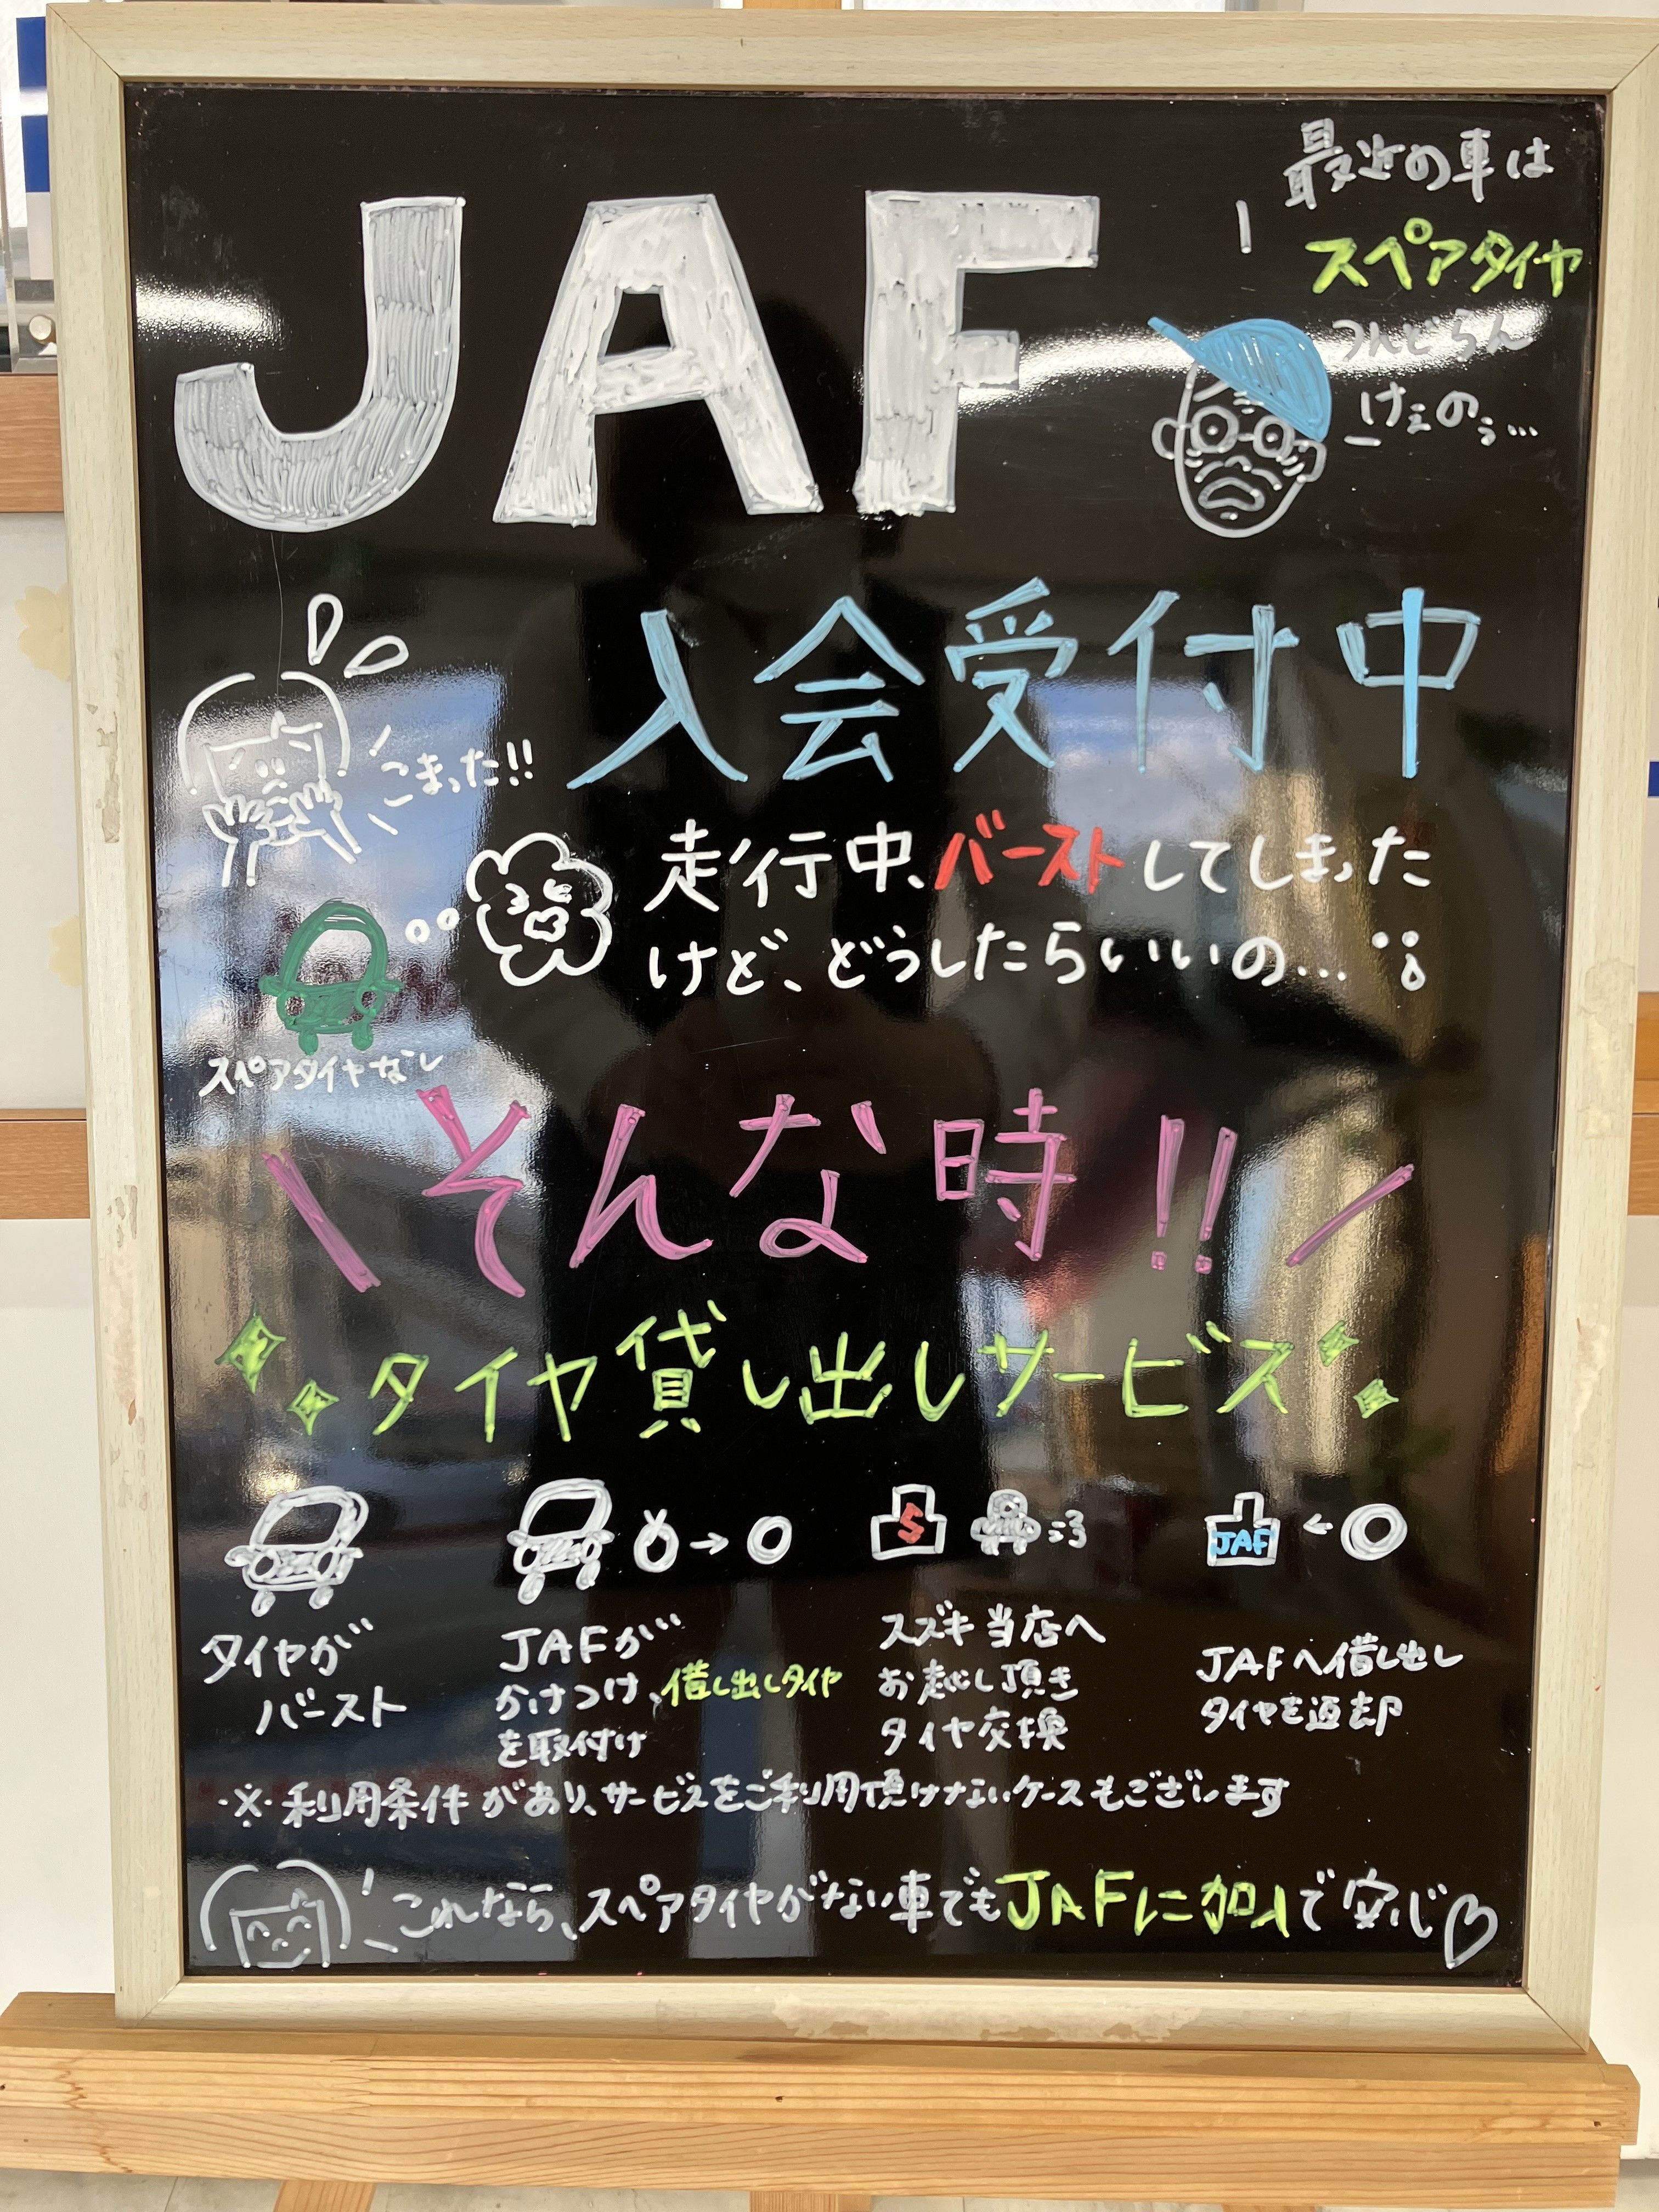 JAF
最近の車は
スペアタイヤ
つんどらん
けぇのぅ...
入会受付中
こまった!!
走行中、バーストしてしまった
けど、どうしたらいいの...
スペアタイヤなし
そんな時!!
タイヤ貸し出しサービス
S
JAF
タイヤが
バースト
JAFが
かけつけ、借し出しタイヤ
を取付け
スズキ当店へ
お越し頂き
タイヤ交換
JAFへ借し出し
タイヤを返却
※利用条件があり、サービスをご利用頂けないケースもございます
これなら、スペアタイヤがない車でもJAFに加入で安心♡